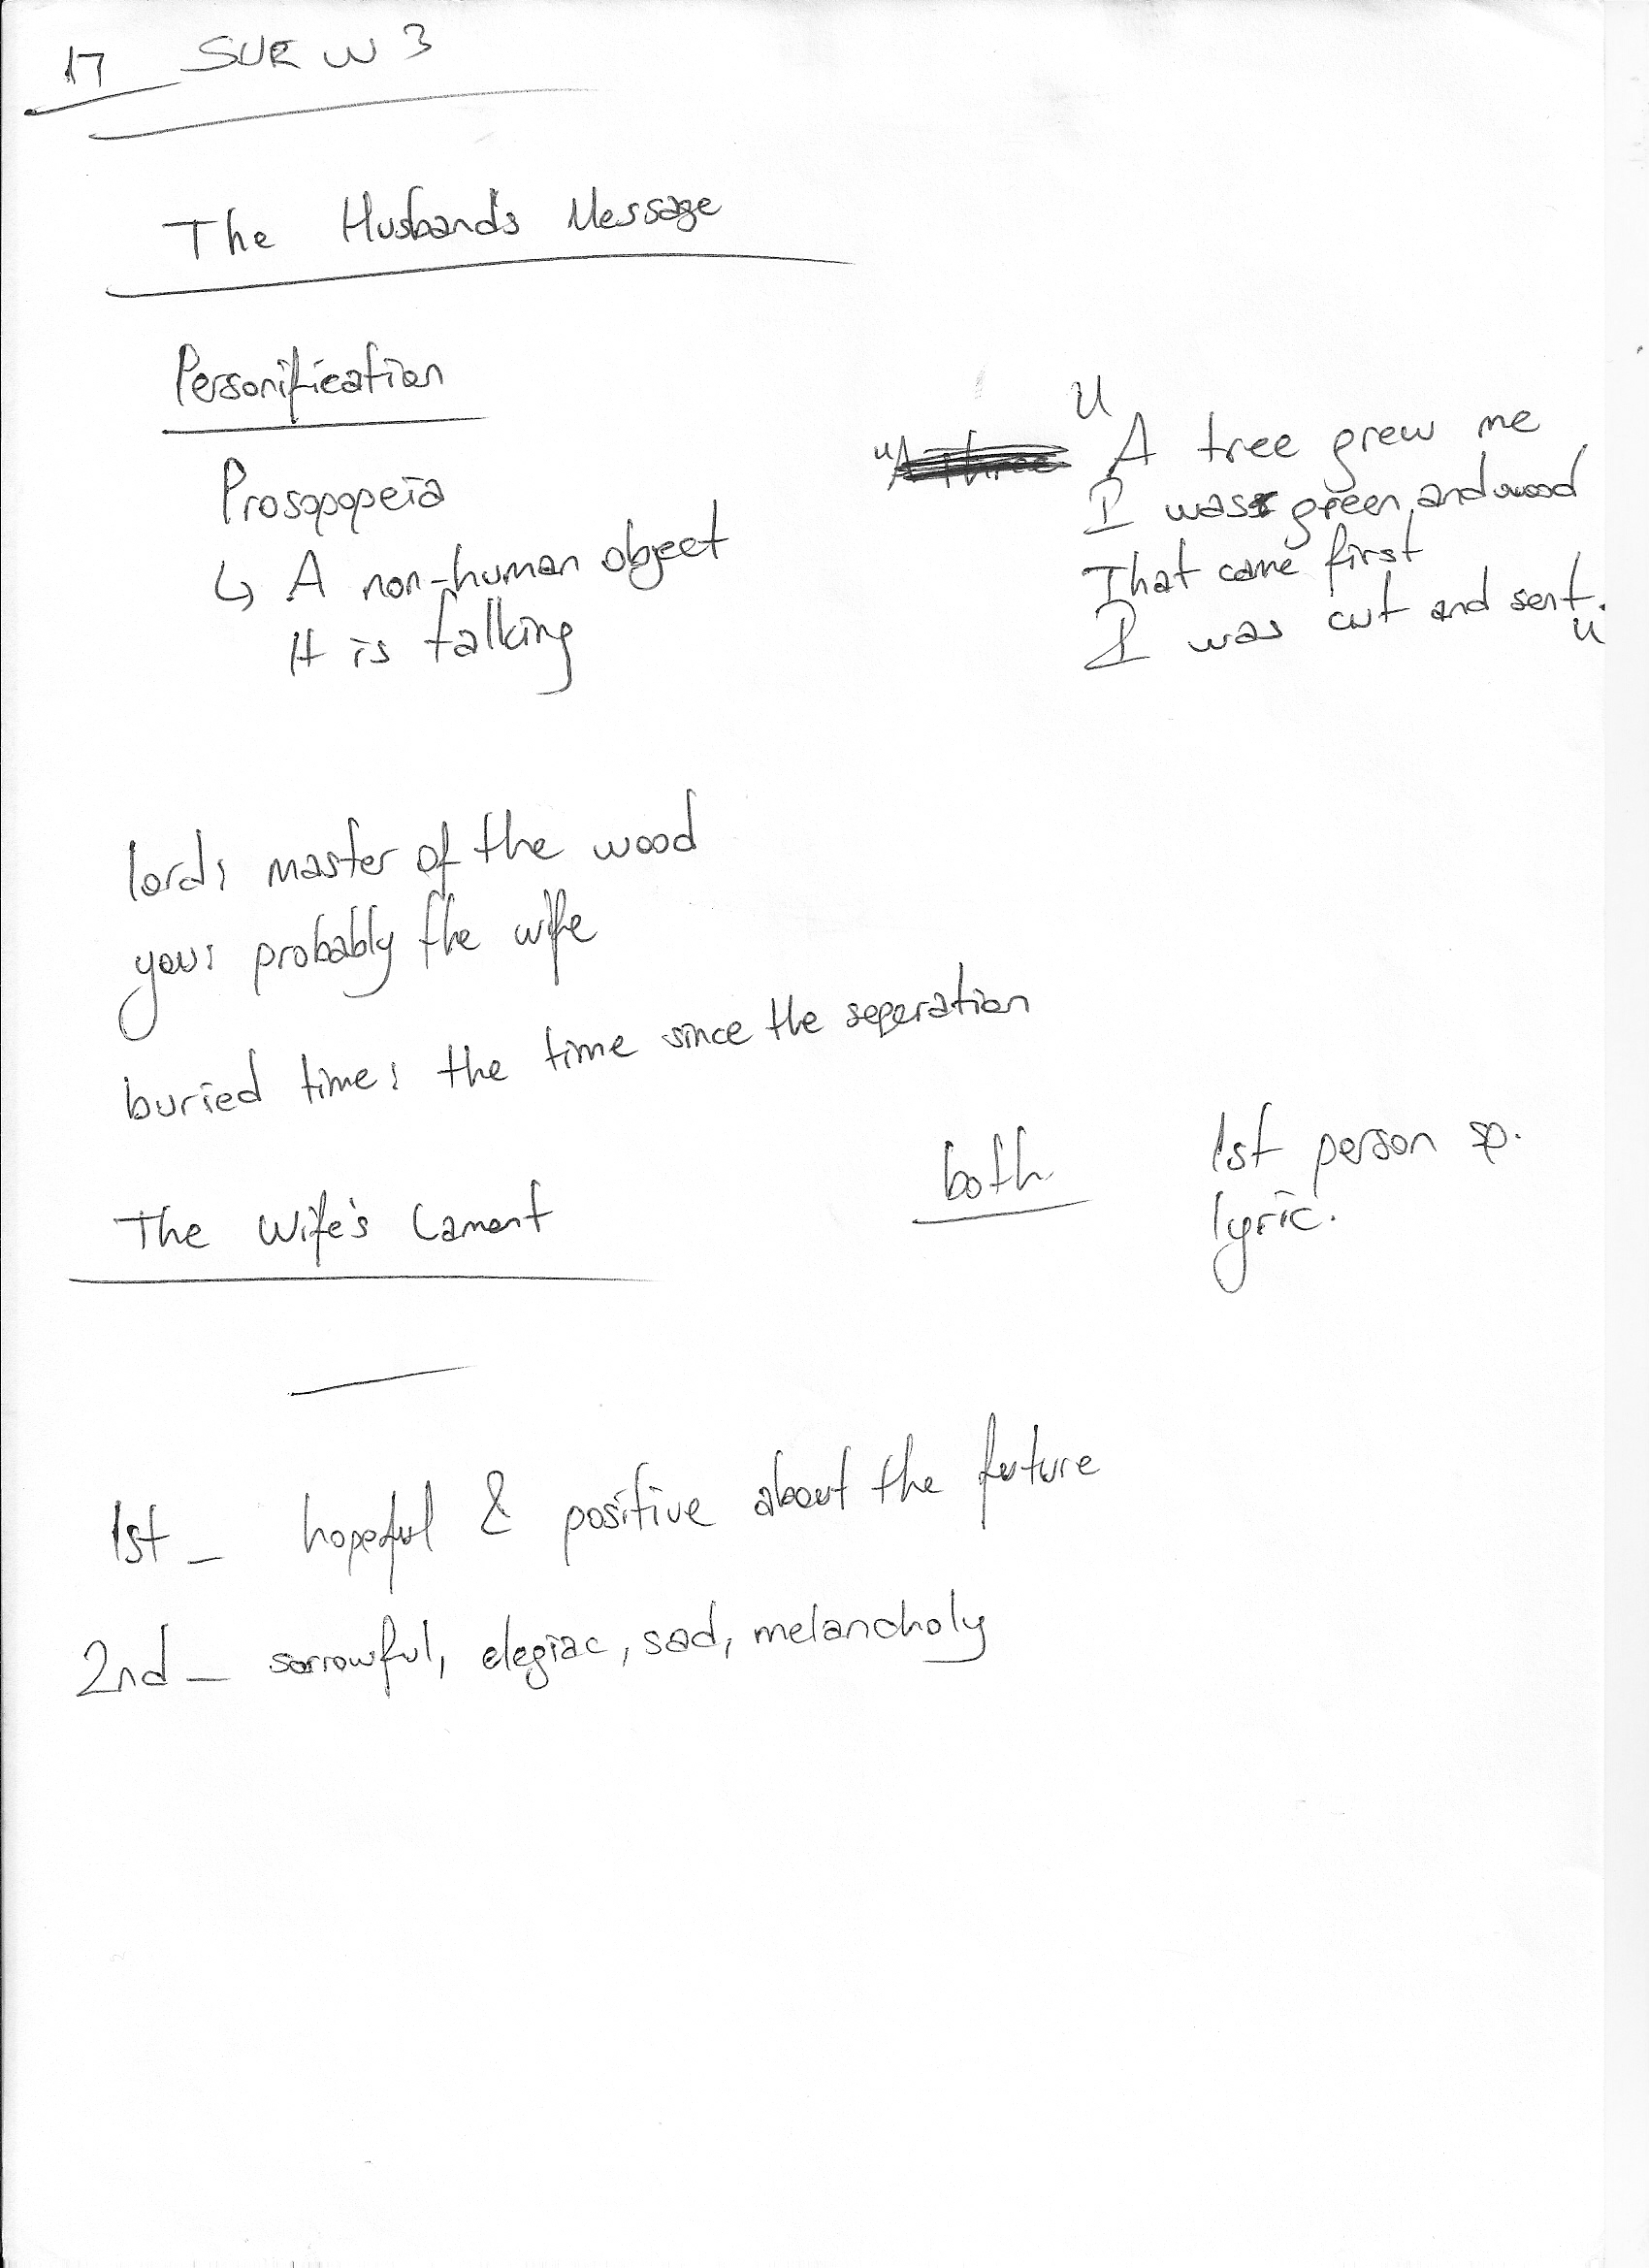 17 SUR W 3
The Husband's Message
Personification
Prosopopeia
↳ A non-human object
It is talking
"A tree grew me
I was green, and wood
That came first
I was cut and sent."
lord: master of the wood
you: probably the wife
buried time: the time since the seperation
The Wife's Lament
both 1st person sp.
lyric.
1st - hopeful & positive about the future
2nd - sorrowful, elegiac, sad, melancholy